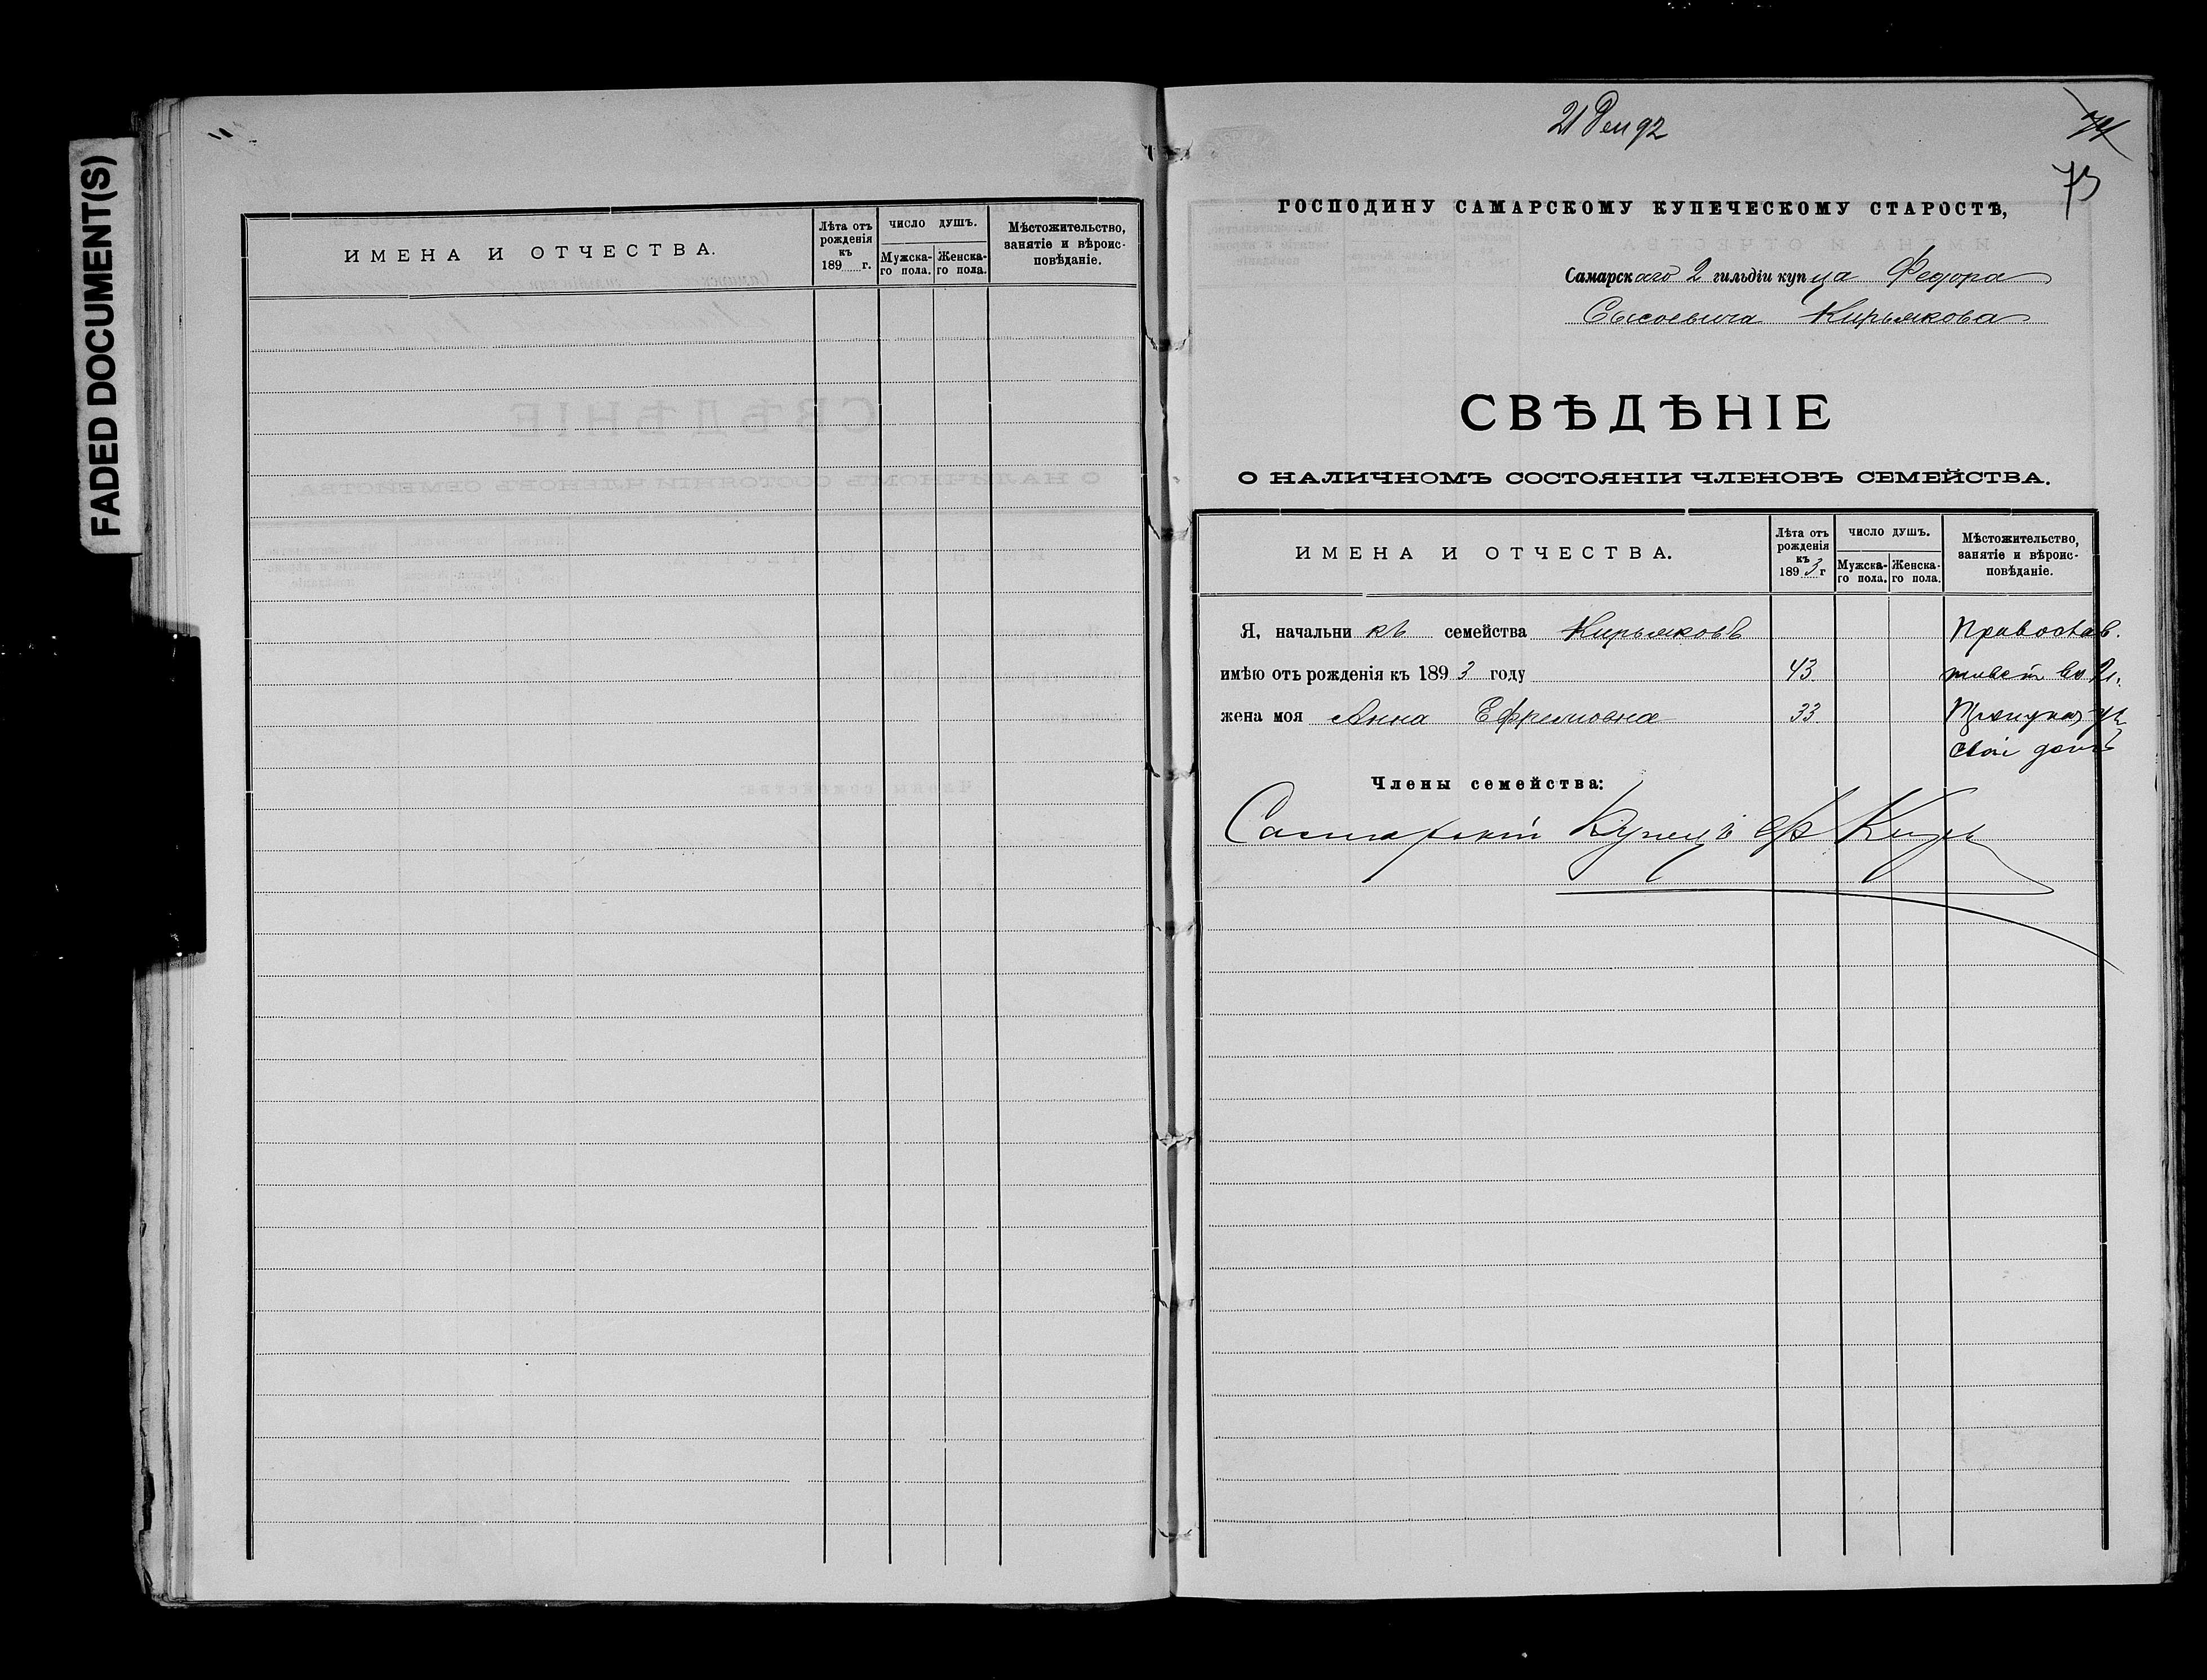 FADED DOCUMENT(S)
ИМЕНА И ОТЧЕСТВА.
Лѣта отъ рожденія къ 189 г.
ЧИСЛО ДУШЪ.
Мужска-го пола.
Женска-го пола.
Мѣстожительство, занятіе и вѣроис-повѣданіе.
21 Дек 92
74
73
ГОСПОДИНУ САМАРСКОМУ КУПЕЧЕСКОМУ СТАРОСТѢ,
Самарскаго 2 гильдіи купца Федора
Сысоевича Кирьякова
СВѢДѢНІЕ
О НАЛИЧНОМЪ СОСТОЯНІИ ЧЛЕНОВЪ СЕМЕЙСТВА.
ИМЕНА И ОТЧЕСТВА.
Лѣта отъ рожденія къ 1893 г
ЧИСЛО ДУШЪ.
Мужска-го пола.
Женска-го пола.
Мѣстожительство, занятіе и вѣроис-повѣданіе.
Я, начальникъ семейства Кирьяковъ Православ.
имѣю отъ рожденія къ 1893 году 43 во 2 ч.
жена моя Анна Ефремовна 33
свой домъ
Члены семейства:
Самарскій Купецъ Ф Кирь